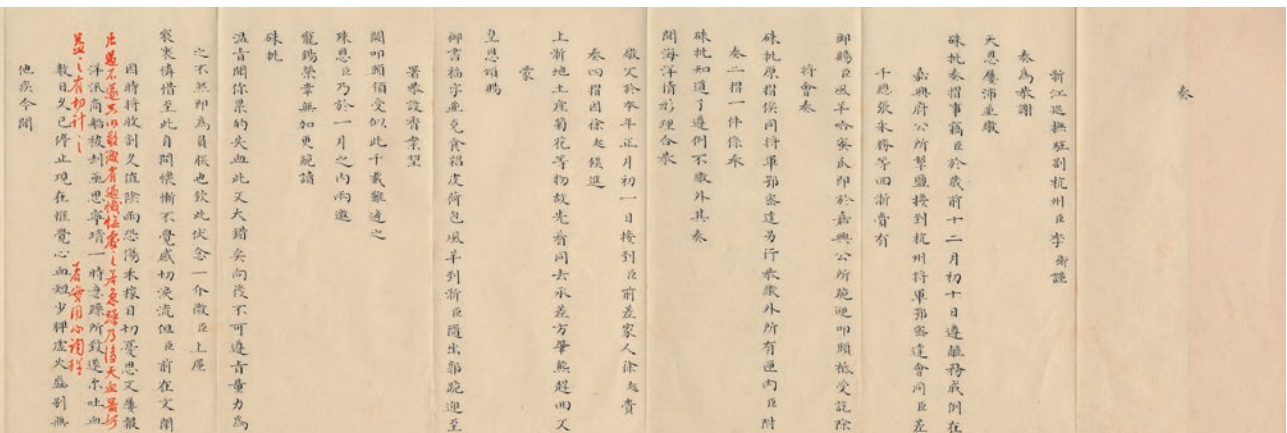 奏
浙江巡撫駐劄杭州臣李衛謹
奏為恭謝
天恩屢沛並繳
硃批奏摺事竊臣於歲前十二月初十日遵鹽務成例在
嘉興府公所掣鹽接到杭州將軍鄂密達會同臣差
千總張承務等回浙賫有
御賜臣風羊哈蜜瓜即於嘉興公所跪迎叩頭祗受訖除
將會奏
硃批原摺俟同將軍鄂密達另行恭繳外所有匣內臣附
奏二摺一件係奉
硃批知道了遵例不繳外其奏
聞海洋情形理合恭
繳又於本年正月初一日接到臣前差家人徐起賫
奏四摺因徐起候進
上浙地土產菊花等物故先着同去承差方肇熊趕回又
蒙
皇恩頒賜
御書福字並克食貂皮荷包風羊到浙臣隨出郭跪迎至
署恭設香案望
闕叩頭領受似此千載難逢之
殊恩臣乃於一月之內兩邀
寵錫榮幸無加更跪讀
硃批
溫旨聞你果的失血此又大錯矣向後不可遵旨量力為
之不然即為負朕也欽此伏念一介微臣上廑
宸衷憐惜至此自問慚慚不覺感切涕流但臣前在文闈
因時將收割久值陰雨恐傷禾稼日切憂思又屢報
洋汛商船被刦亟思寧靖一時急躁所致遂爾吐血
數日久已停止現在惟覺心血短少脾虛火盛別無
他疾今聞